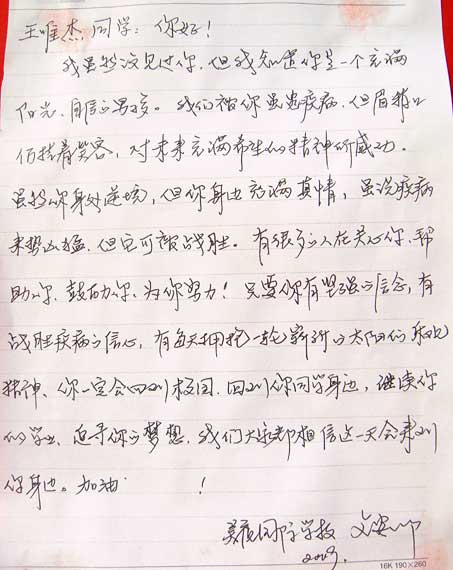 王唯杰同学：你好！
我虽然没见过你，但我知道你是一个充满
阳光、自信的男孩。我们被你虽患疾病，但眉梢
仍挂着笑容，对未来充满希望的精神所感动。
虽然你身处逆境，但你身边充满真情，虽说疾病
来势凶猛，但它可被战胜。有很多的人在关心你、帮
助你、鼓励你、为你努力！只要你有坚强的信念，有
战胜疾病的信心，有每天拥抱一轮崭新的太阳的乐观
精神、你一定会回到校园，回到你同学身边，继续你
的学业、追寻你的梦想，我们大家都相信这一天会来到
你身边。加油！
国际学校
16K 190×260